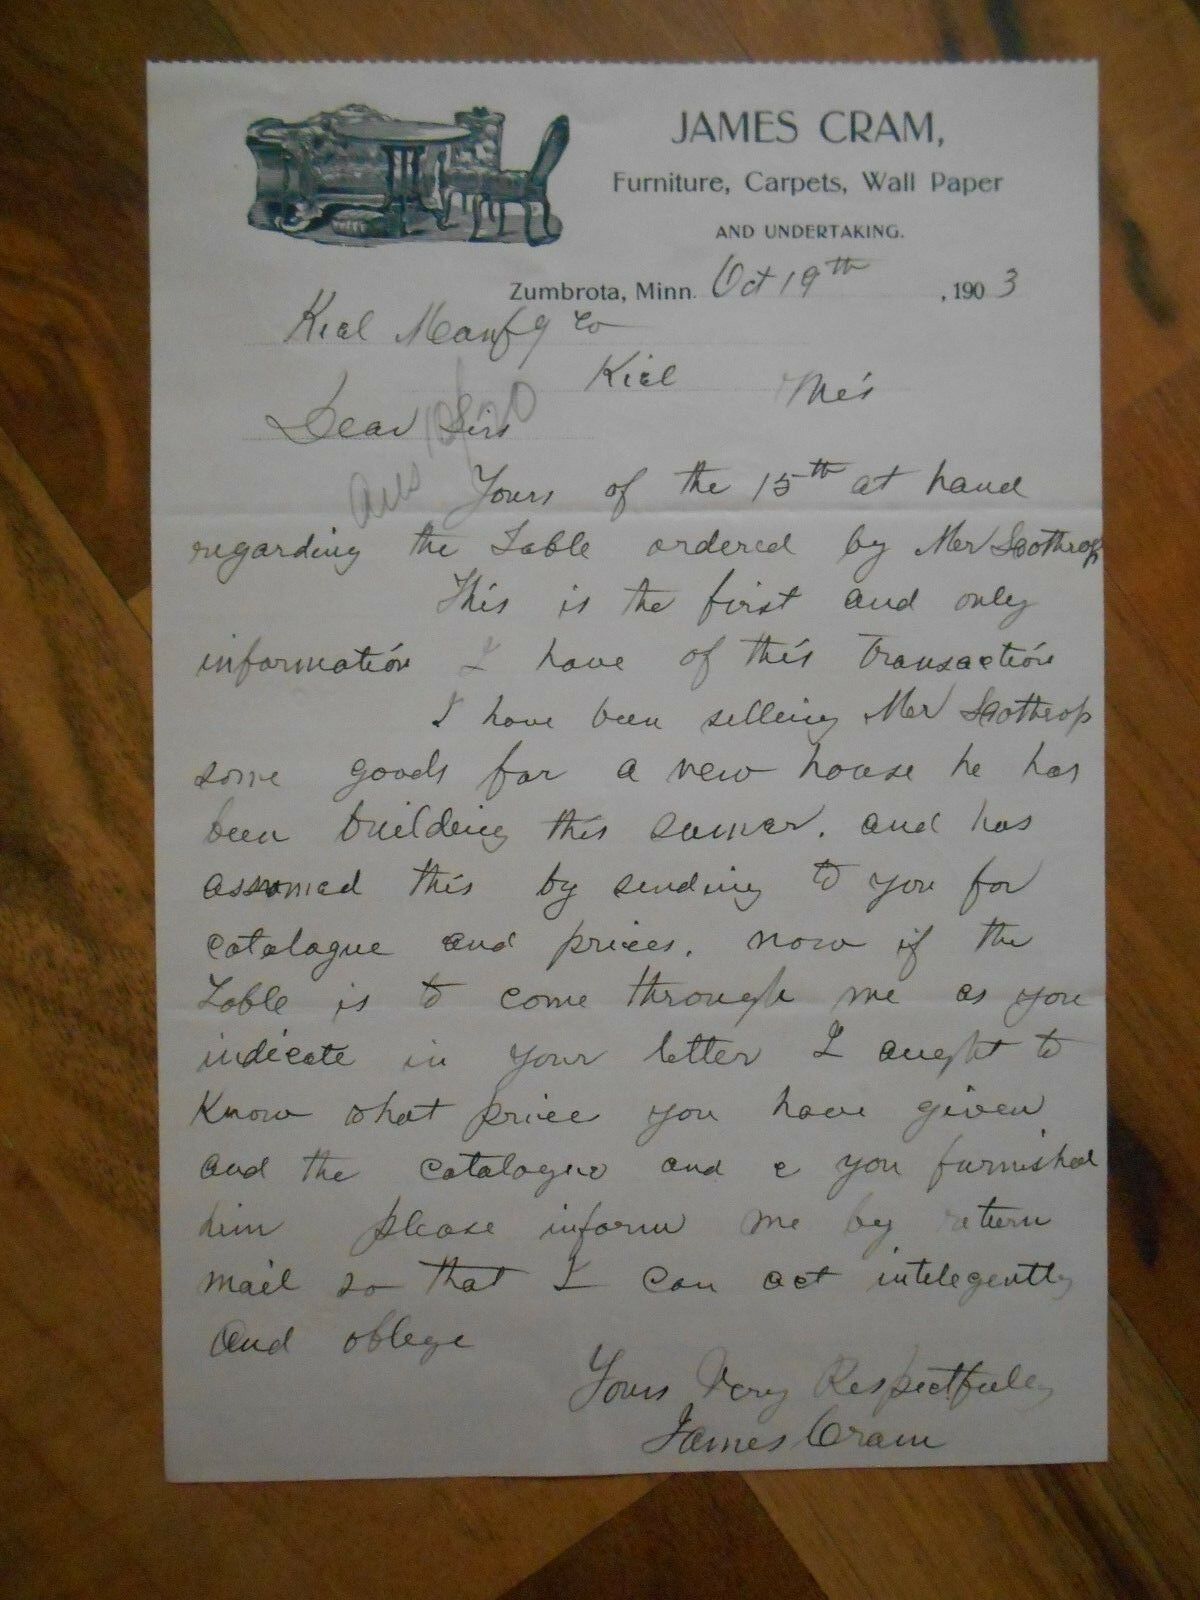 JAMES CRAM,
Furniture, Carpets, Wall Paper
AND UNDERTAKING.
Zumbrota, Minn. Oct 19th, 1903
Kiel Manfg Co
Kiel Wis
Dear Sirs
Ans 10/20
Yours of the 15th at hand
regarding the Table ordered by Mr Scothrop
This is the first and only
information I have of this Transaction
I have been selling Mr Scothrop
some goods for a new house he has
been building this sumer. and has
assomed this by sending to you for
catalague and prices. now if the
Table is to come through me as you
indicate in your letter I aught to
Know what price you have given
and the catalogue and c you furnished
him please inform me by return
mail so that I can act intelegently
And oblege
Yours Very Respectfuley
James Cram